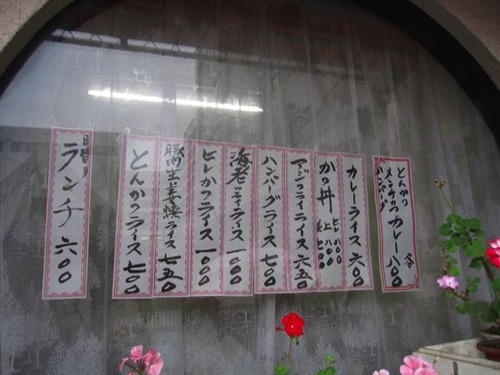 とんかつ
メンチカツ
ハンバーグ
カレー 各 八〇〇
カレーライス 六〇〇
かつ丼
ヒレ 八〇〇
上 八〇〇
並 七〇〇
アジフライライス 六五〇
ハンバーグライス 七〇〇
海老フライライス 一〇〇〇
ヒレかつライス 一〇〇〇
豚肉生姜焼ライス 七五〇
とんかつライス 七〇〇
日替り
ランチ 六〇〇